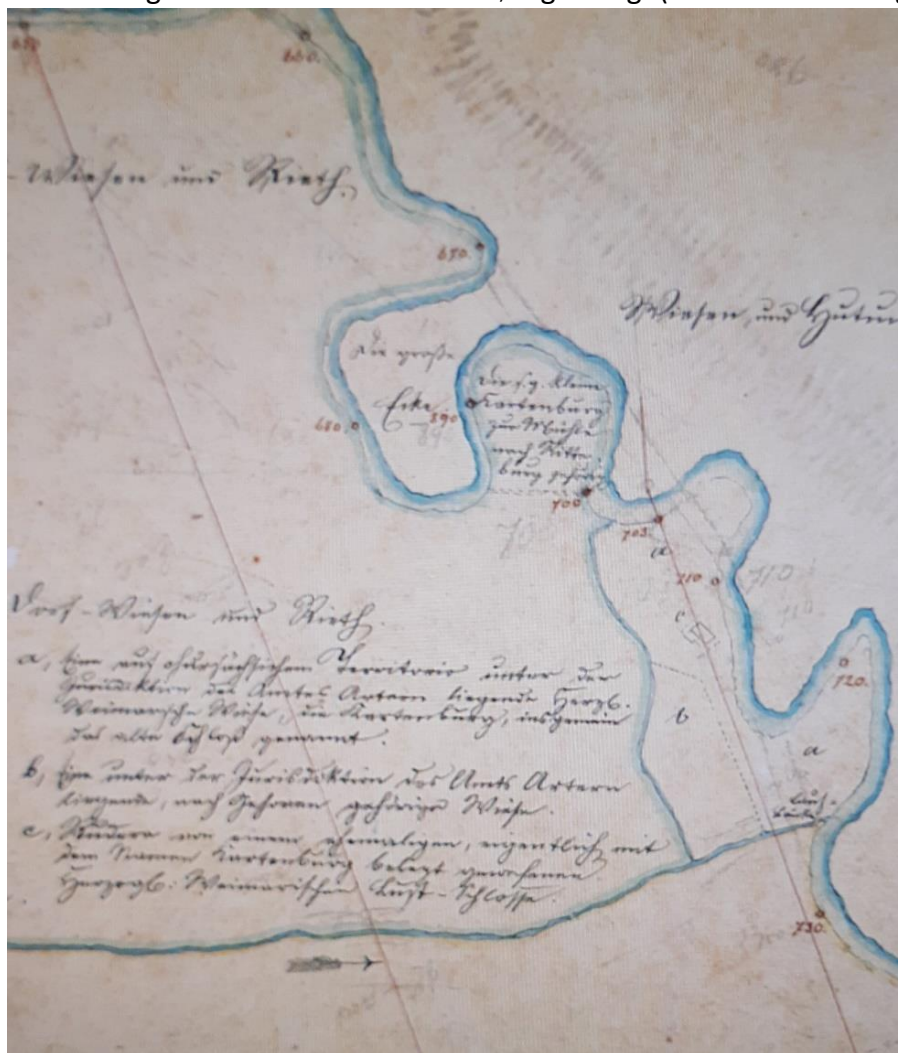 660.
Wiesen und Rieth.
670.
Wiesen, und Hutun
Die große
Ecke
680.
690
Die s.g. kleine
Kartenburg
zur Mühle
nach Ritte-
burg gehörig
700
703.
a
710.
710
c
720.
b
a
Dorf-Wiesen und Rieth.
a, Eine auf chursächsischem Territorio unter der
Jurisdiktion des Amtes Artern liegende Herzgl.
Weimarsche Wiese, die Kartenburg, insgemein
das alte Schloß genannt.
b, Eine unter der Jurisdiktion des Amts Artern
liegende, nach Gehoven gehörige Wiese.
c, Rudera von einem ehemaligen, eigentlich mit
dem Namen Kartenburg belegt gewesenen
Herzogl: Weimarischen Lust-Schlosse.
730.